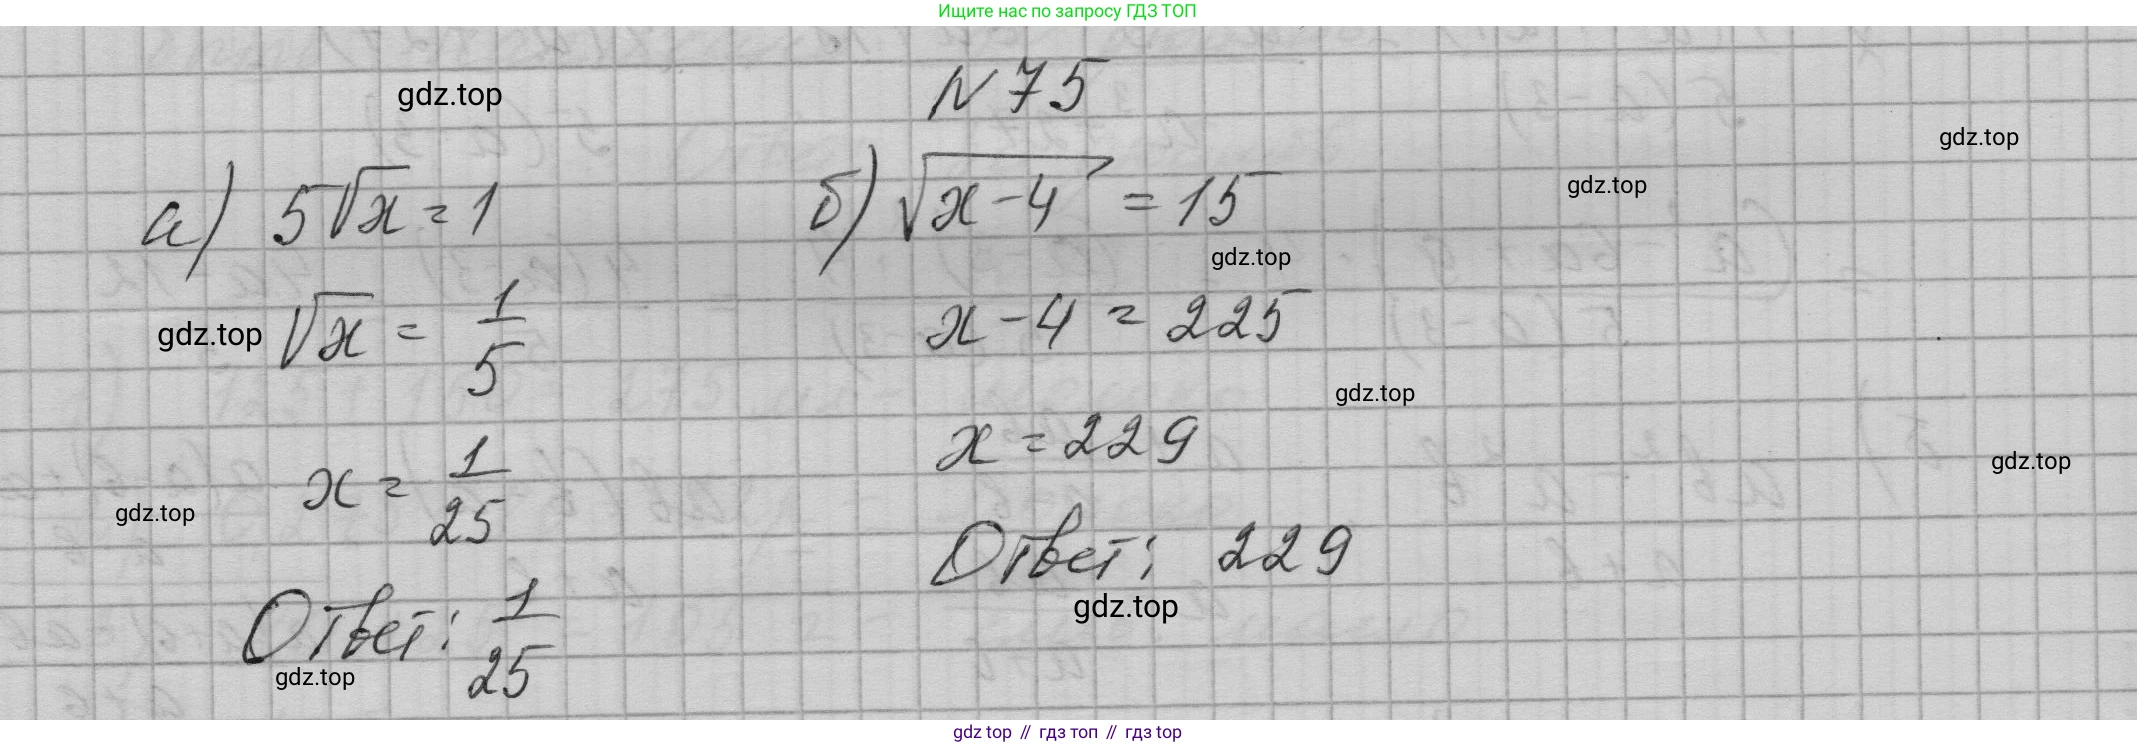 Ищите нас по запросу ГДЗ ТОП
N 75
gdz.top
gdz.top
gdz.top
а) 5√x = 1
√x = 1/5
gdz.top
x = 1/25
gdz.top
Ответ: 1/25
gdz.top
б) √(x - 4) = 15
gdz.top
x - 4 = 225
gdz.top
x = 229
gdz.top
Ответ: 229
gdz.top
gdz top // гдз топ // гдз top